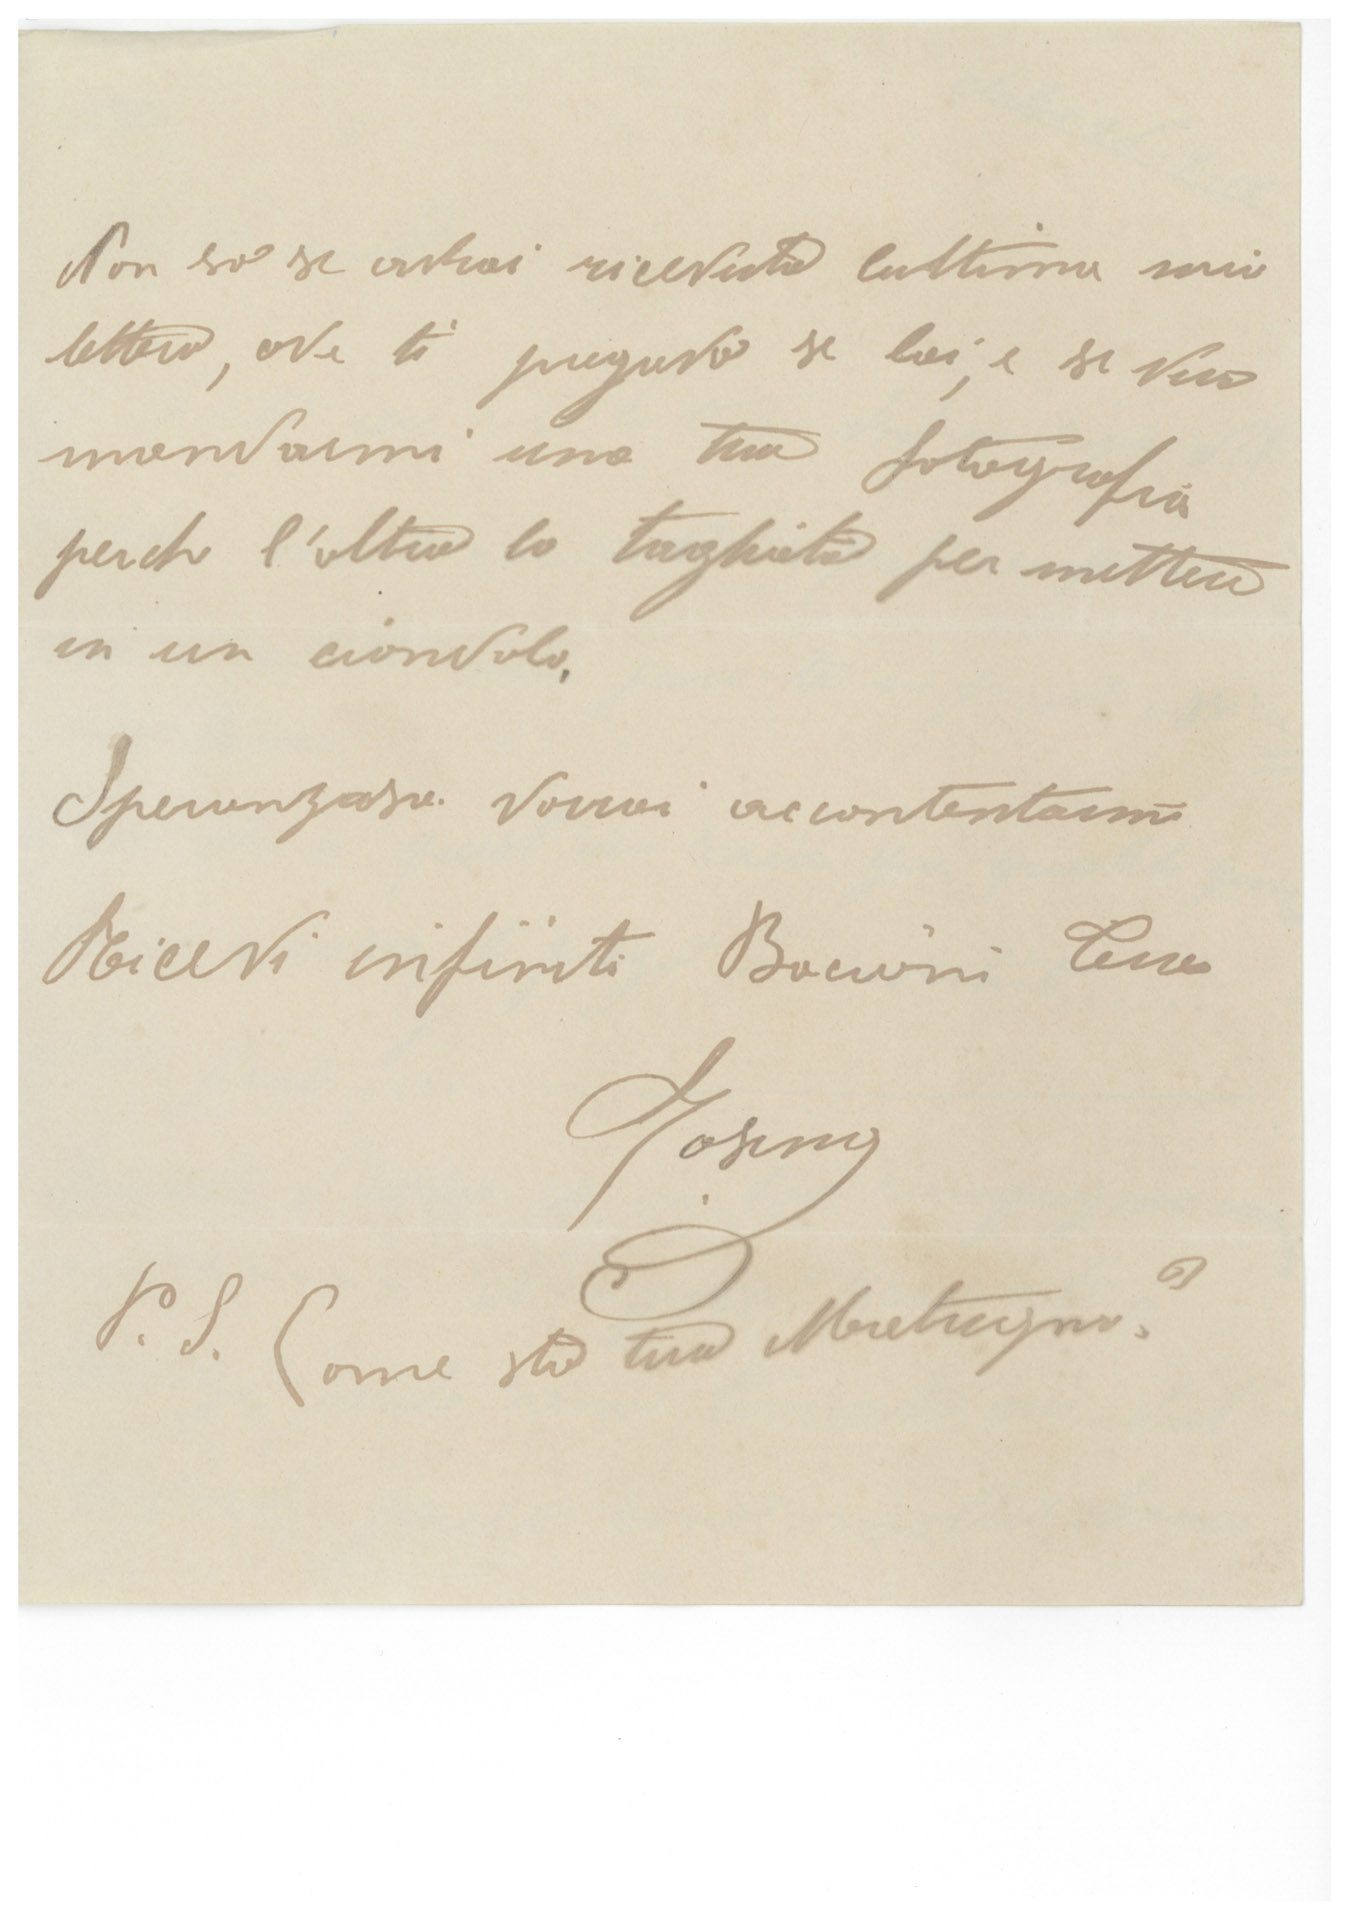 Non so se avrai ricevuta lultima mia
lettera, ove ti pregava se lai, e se vuoi
mandarmi una tua fotografia
perche l'altra lo tagliata per mettere
in un ciondolo.
Speranzosa vorrai accontentarmi
Ricevi infiniti Bacioni Tua
P. S. Come sta tua Matrigna?